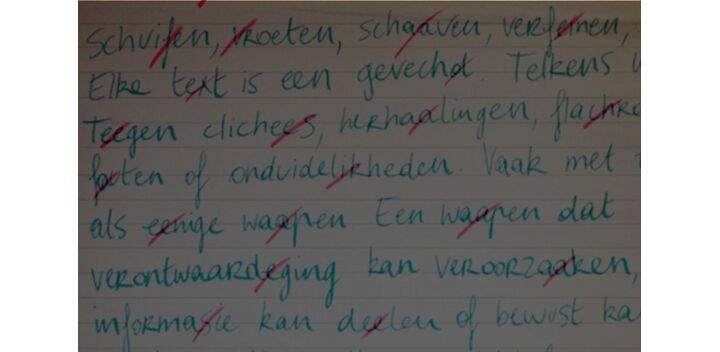 Schuifen, vroeten, schaaven, verfeinen,
Elke text is een gevechd. Telkens
Teegen clichees, herhaalingen, flachr
foten of onduidelijkheden. Vaak met
als eenige waapen. Een waapen dat
verontwaardeging kan veroorzaaken,
informasie kan deelen of bewust ka